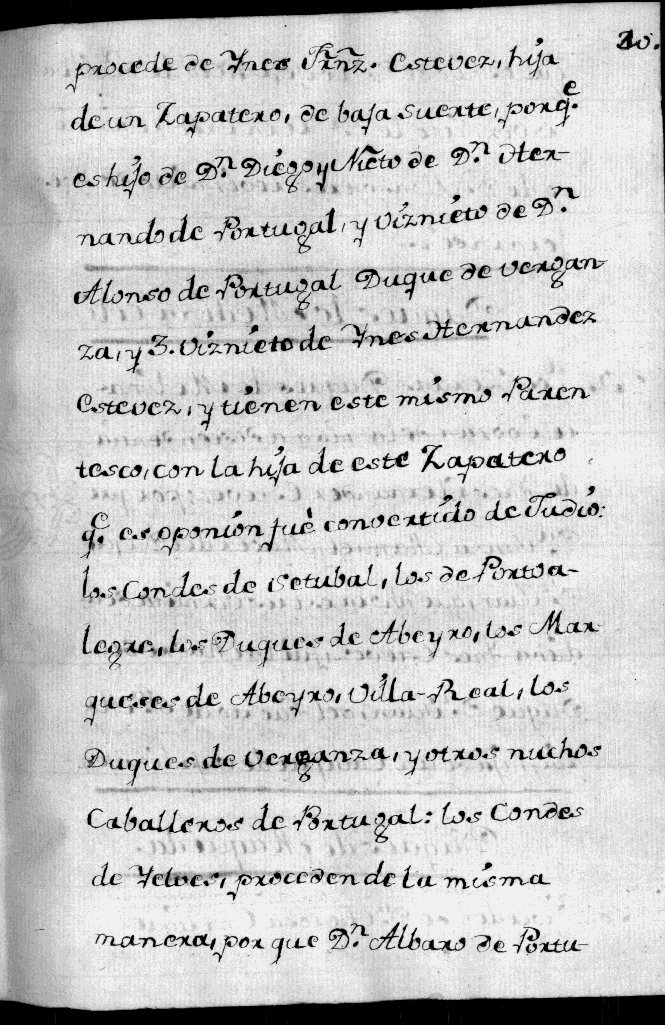 20.
procede de Ynes Frñz. Estevez, hija
de un Zapatero, de baja suerte, porq.e
es hijo de D.n Diego y Nieto de D.n Her-
nando de Portugal, y Viznieto de D.n
Alonso de Portugal Duque de Vergan-
za, y 3. Viznieto de Ynes Hernandez
Estevez, y tienen este mismo Paren
tesco, con la hija de este Zapatero
q.e es oponion fuè convertido de Judio:
los Condes de Setubal, los de Portoa-
legre, los Duques de Abeyro, los Mar-
queses de Abeyro, Villa-Real, los
Duques de Verganza, y otros nuchos
Caballeros de Portugal: los Condes
de Yelves, proceden de la misma
manera, por que D.n Albaro de Portu-